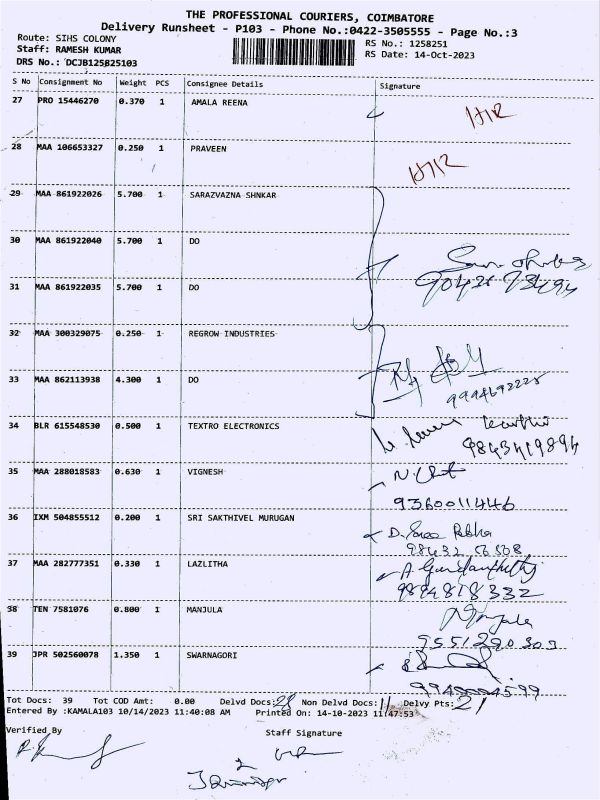 THE PROFESSIONAL COURIERS, COIMBATORE
Delivery Runsheet - P103 - Phone No.:0422-3505555 - Page No.:3
Route: SIHS COLONY
Staff: RAMESH KUMAR
DRS No.: DCJB125825103
RS No.: 1258251
RS Date: 14-Oct-2023
S No Consignment No Weight PCS Consignee Details Signature
27 PRO 15446270 0.370 1 AMALA REENA
28 MAA 106653327 0.250 1 PRAVEEN
29 MAA 861922026 5.700 1 SARAZVAZNA SHNKAR
30 MAA 861922040 5.700 1 DO
31 MAA 861922035 5.700 1 DO
32 MAA 300329075 0.250 1 REGROW INDUSTRIES
33 MAA 862113938 4.300 1 DO
9994692225
34 BLR 615548530 0.500 1 TEXTRO ELECTRONICS
9843419894
35 MAA 288018583 0.630 1 VIGNESH
9360011446
36 IXM 504855512 0.200 1 SRI SAKTHIVEL MURUGAN
37 MAA 282777351 0.330 1 LAZLITHA
9894818332
38 TEN 7581076 0.800 1 MANJULA
9551290303
39 JPR 502560078 1.350 1 SWARNAGORI
Tot Docs: 39 Tot COD Amt: 0.00 Delvd Docs: 28 Non Delvd Docs: 11 Delvy Pts: 21
Entered By :KAMALA103 10/14/2023 11:40:08 AM Printed On: 14-10-2023 11:47:53
Verified By
Staff Signature